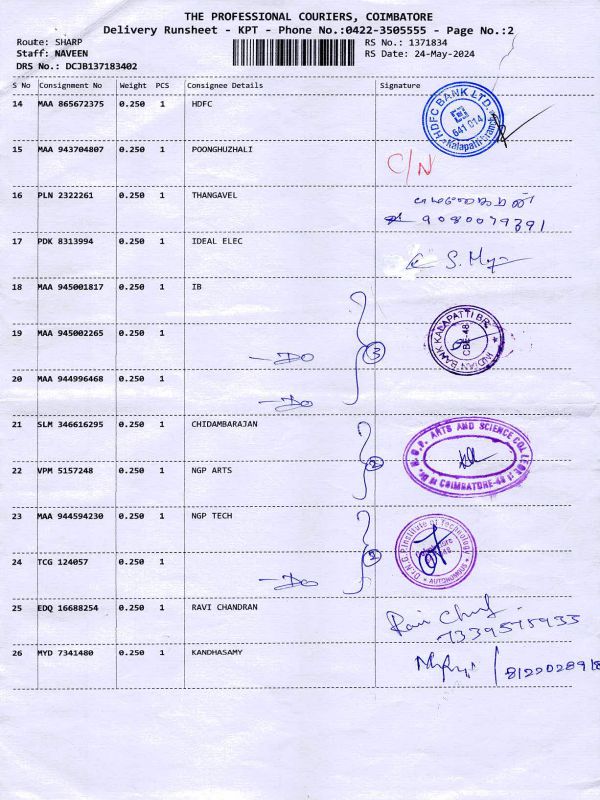 THE PROFESSIONAL COURIERS, COIMBATORE
Delivery Runsheet - KPT - Phone No.:0422-3505555 - Page No.:2
Route: SHARP RS No.: 1371834
Staff: NAVEEN RS Date: 24-May-2024
DRS No.: DCJB137183402
S No Consignment No Weight PCS Consignee Details Signature
14 MAA 865672375 0.250 1 HDFC
HDFC BANK LTD. 641 014 Kalapatti Branch
15 MAA 943704807 0.250 1 POONGHUZHALI
C/N
16 PLN 2322261 0.250 1 THANGAVEL
9080079391
17 PDK 8313994 0.250 1 IDEAL ELEC
18 MAA 945001817 0.250 1 IB
19 MAA 945002265 0.250 1
-DO 3
INDIAN BANK KALAPATTI BR. CBE-48
20 MAA 944996468 0.250 1
-DO
21 SLM 346616295 0.250 1 CHIDAMBARAJAN
22 VPM 5157248 0.250 1 NGP ARTS
2
Dr. N.G.P. ARTS AND SCIENCE COLLEGE COIMBATORE-48
23 MAA 944594230 0.250 1 NGP TECH
24 TCG 124057 0.250 1
-DO
Dr. N.G.P. Institute of Technology AUTONOMOUS
25 EDQ 16688254 0.250 1 RAVI CHANDRAN
Ravi
7339575935
26 MYD 7341480 0.250 1 KANDHASAMY